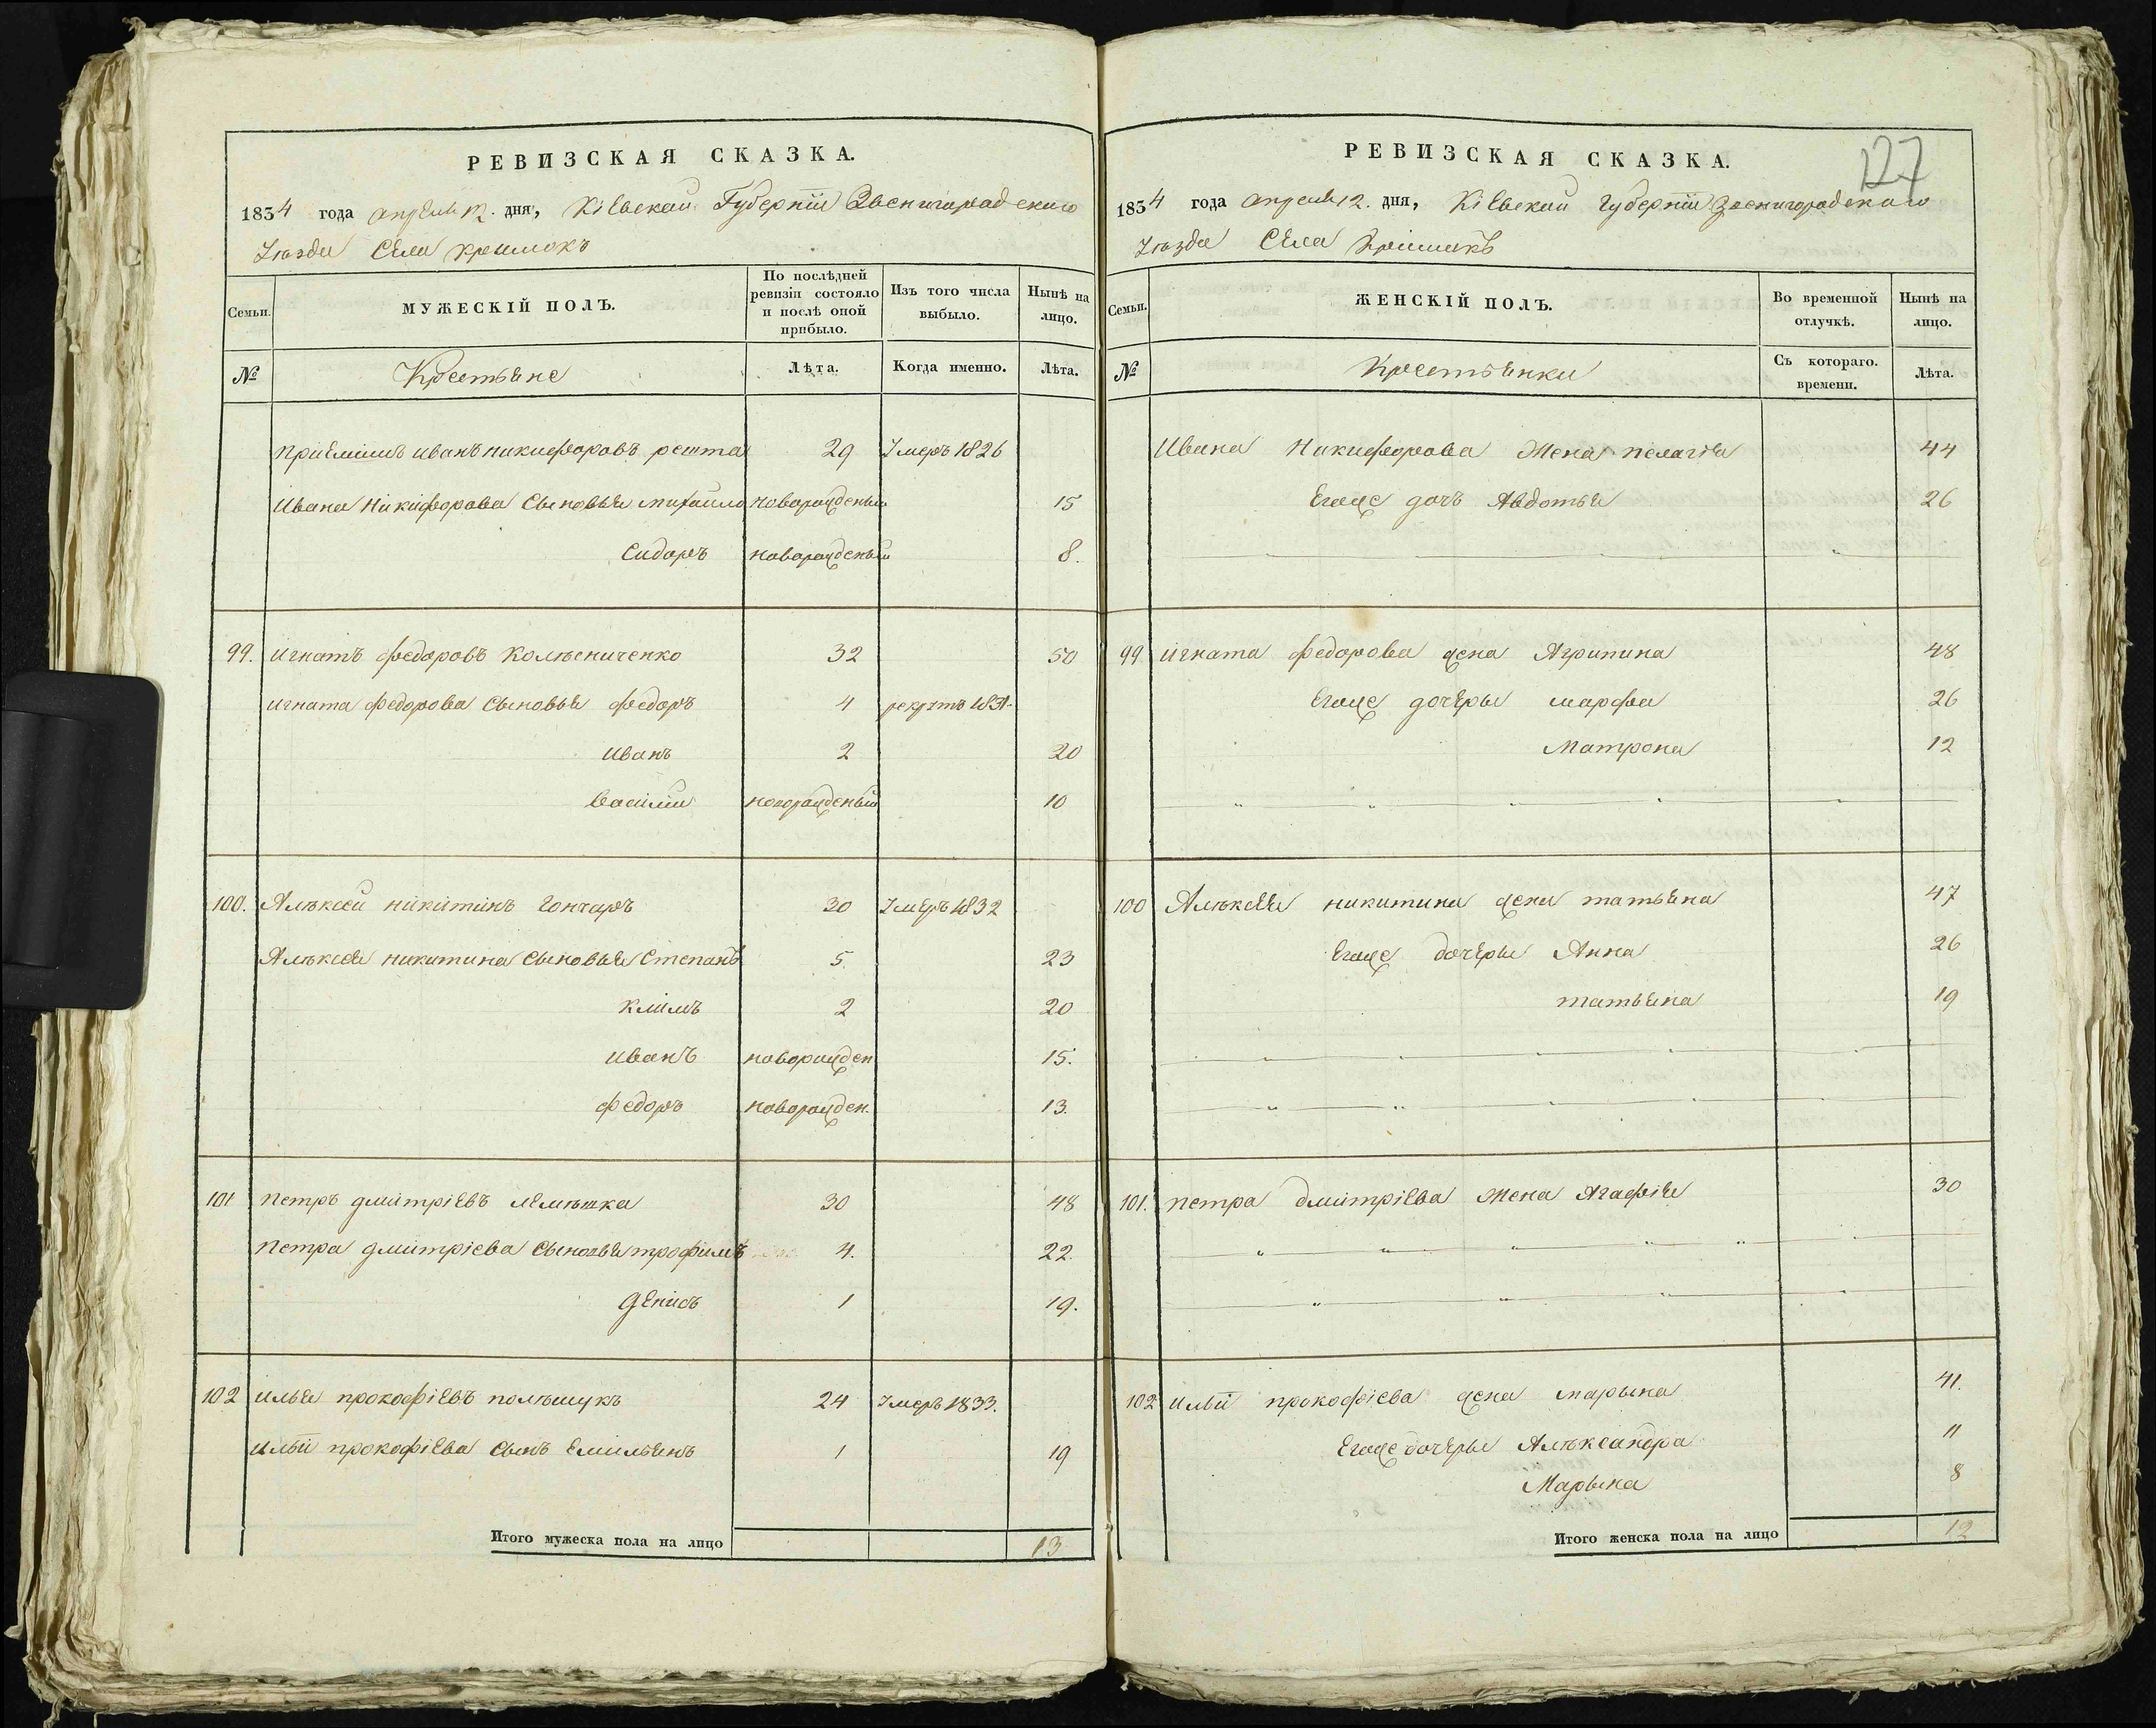 РЕВИЗСКАЯ СКАЗКА.
1834 года апреля 12. дня, Кіевской Губерніи Звенигородского
Уезда Села Кримокъ
Семьи. МУЖЕСКІЙ ПОЛЪ. По послѣдней ревизіи состояло и послѣ оной прибыло. Изъ того числа выбыло. Нынѣ на лицо.
№ Крестьяне Лѣта. Когда именно. Лѣта.
приемишъ иванъ никифоровъ решта 29 Умеръ 1826
Ивана Никифорова Сыновья михайло новорожденый 15
Сидоръ новорожденый 8.
99. игнатъ федоровъ колесниченко 32 50
игната федорова Сыновья федоръ 4 рекрутъ 1831.
иванъ 2 20
василий новорожденый 10
100. Алѣксей никитинъ Гончаръ 30 Умеръ 1832
Алѣксея никитина Сыновья Степанъ 5. 23
климъ 2 20
иванъ новорожден 15.
федоръ новорожден. 13.
101 петръ дмитріевъ 30 48
Петра дмитріева Сыновья трофимъ 4. 22.
Денисъ 1 19.
102 илья прокофіевъ полѣщукъ 24 Умеръ 1833.
ильи прокофіева Сынъ Емильянъ 1 19
Итого мужеска пола на лицо 13
РЕВИЗСКАЯ СКАЗКА.
127
1834 года апреля 12. дня, Кіевской Губерніи Звенигородского
Уезда Села Кримокъ
Семьи. ЖЕНСКІЙ ПОЛЪ. Во временной отлучкѣ. Нынѣ на лицо.
№ Крестьянки Съ котораго. времени. Лѣта.
Ивана Никифорова Жена пелагея 44
Егоже дочъ Авдотья 26
99 игната федорова жена Агрипина 48
Егоже дочеры марфа 26
Матрона 12
100 Алѣксея никитина жена татьяна 47
Егоже дочеры Анна 26
татьяна 19
101. петра дмитріева Жена Агафія 30
102 ильи прокофіева жена марына 41.
Егоже дочеры Алѣксандра 11
Марына 8
Итого женска пола на лицо 12